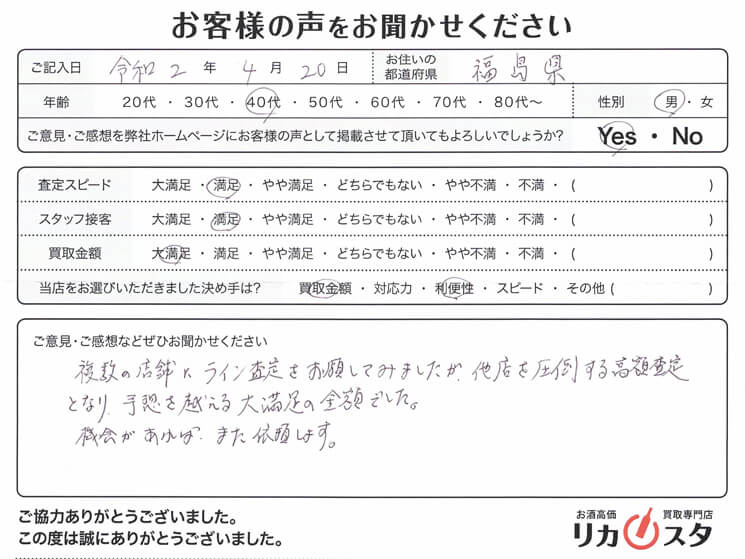 お客様の声をお聞かせください
ご記入日 令和2年4月20日 お住いの都道府県 福島県
年齢 20代・30代・40代・50代・60代・70代・80代〜 性別 男・女
ご意見・ご感想を弊社ホームページにお客様の声として掲載させて頂いてもよろしいでしょうか? Yes・No
査定スピード 大満足・満足・やや満足・どちらでもない・やや不満・不満・( )
スタッフ接客 大満足・満足・やや満足・どちらでもない・やや不満・不満・( )
買取金額 大満足・満足・やや満足・どちらでもない・やや不満・不満・( )
当店をお選びいただきました決め手は? 買取金額・対応力・利便性・スピード・その他( )
ご意見・ご感想などぜひお聞かせください
複数の店舗にライン査定をお願してみましたが、他店を圧倒する高額査定
となり、予想を越える大満足の金額でした。
機会があれば、また依頼します。
ご協力ありがとうございました。
この度は誠にありがとうございました。
お酒高価 買取専門店
リカスタ